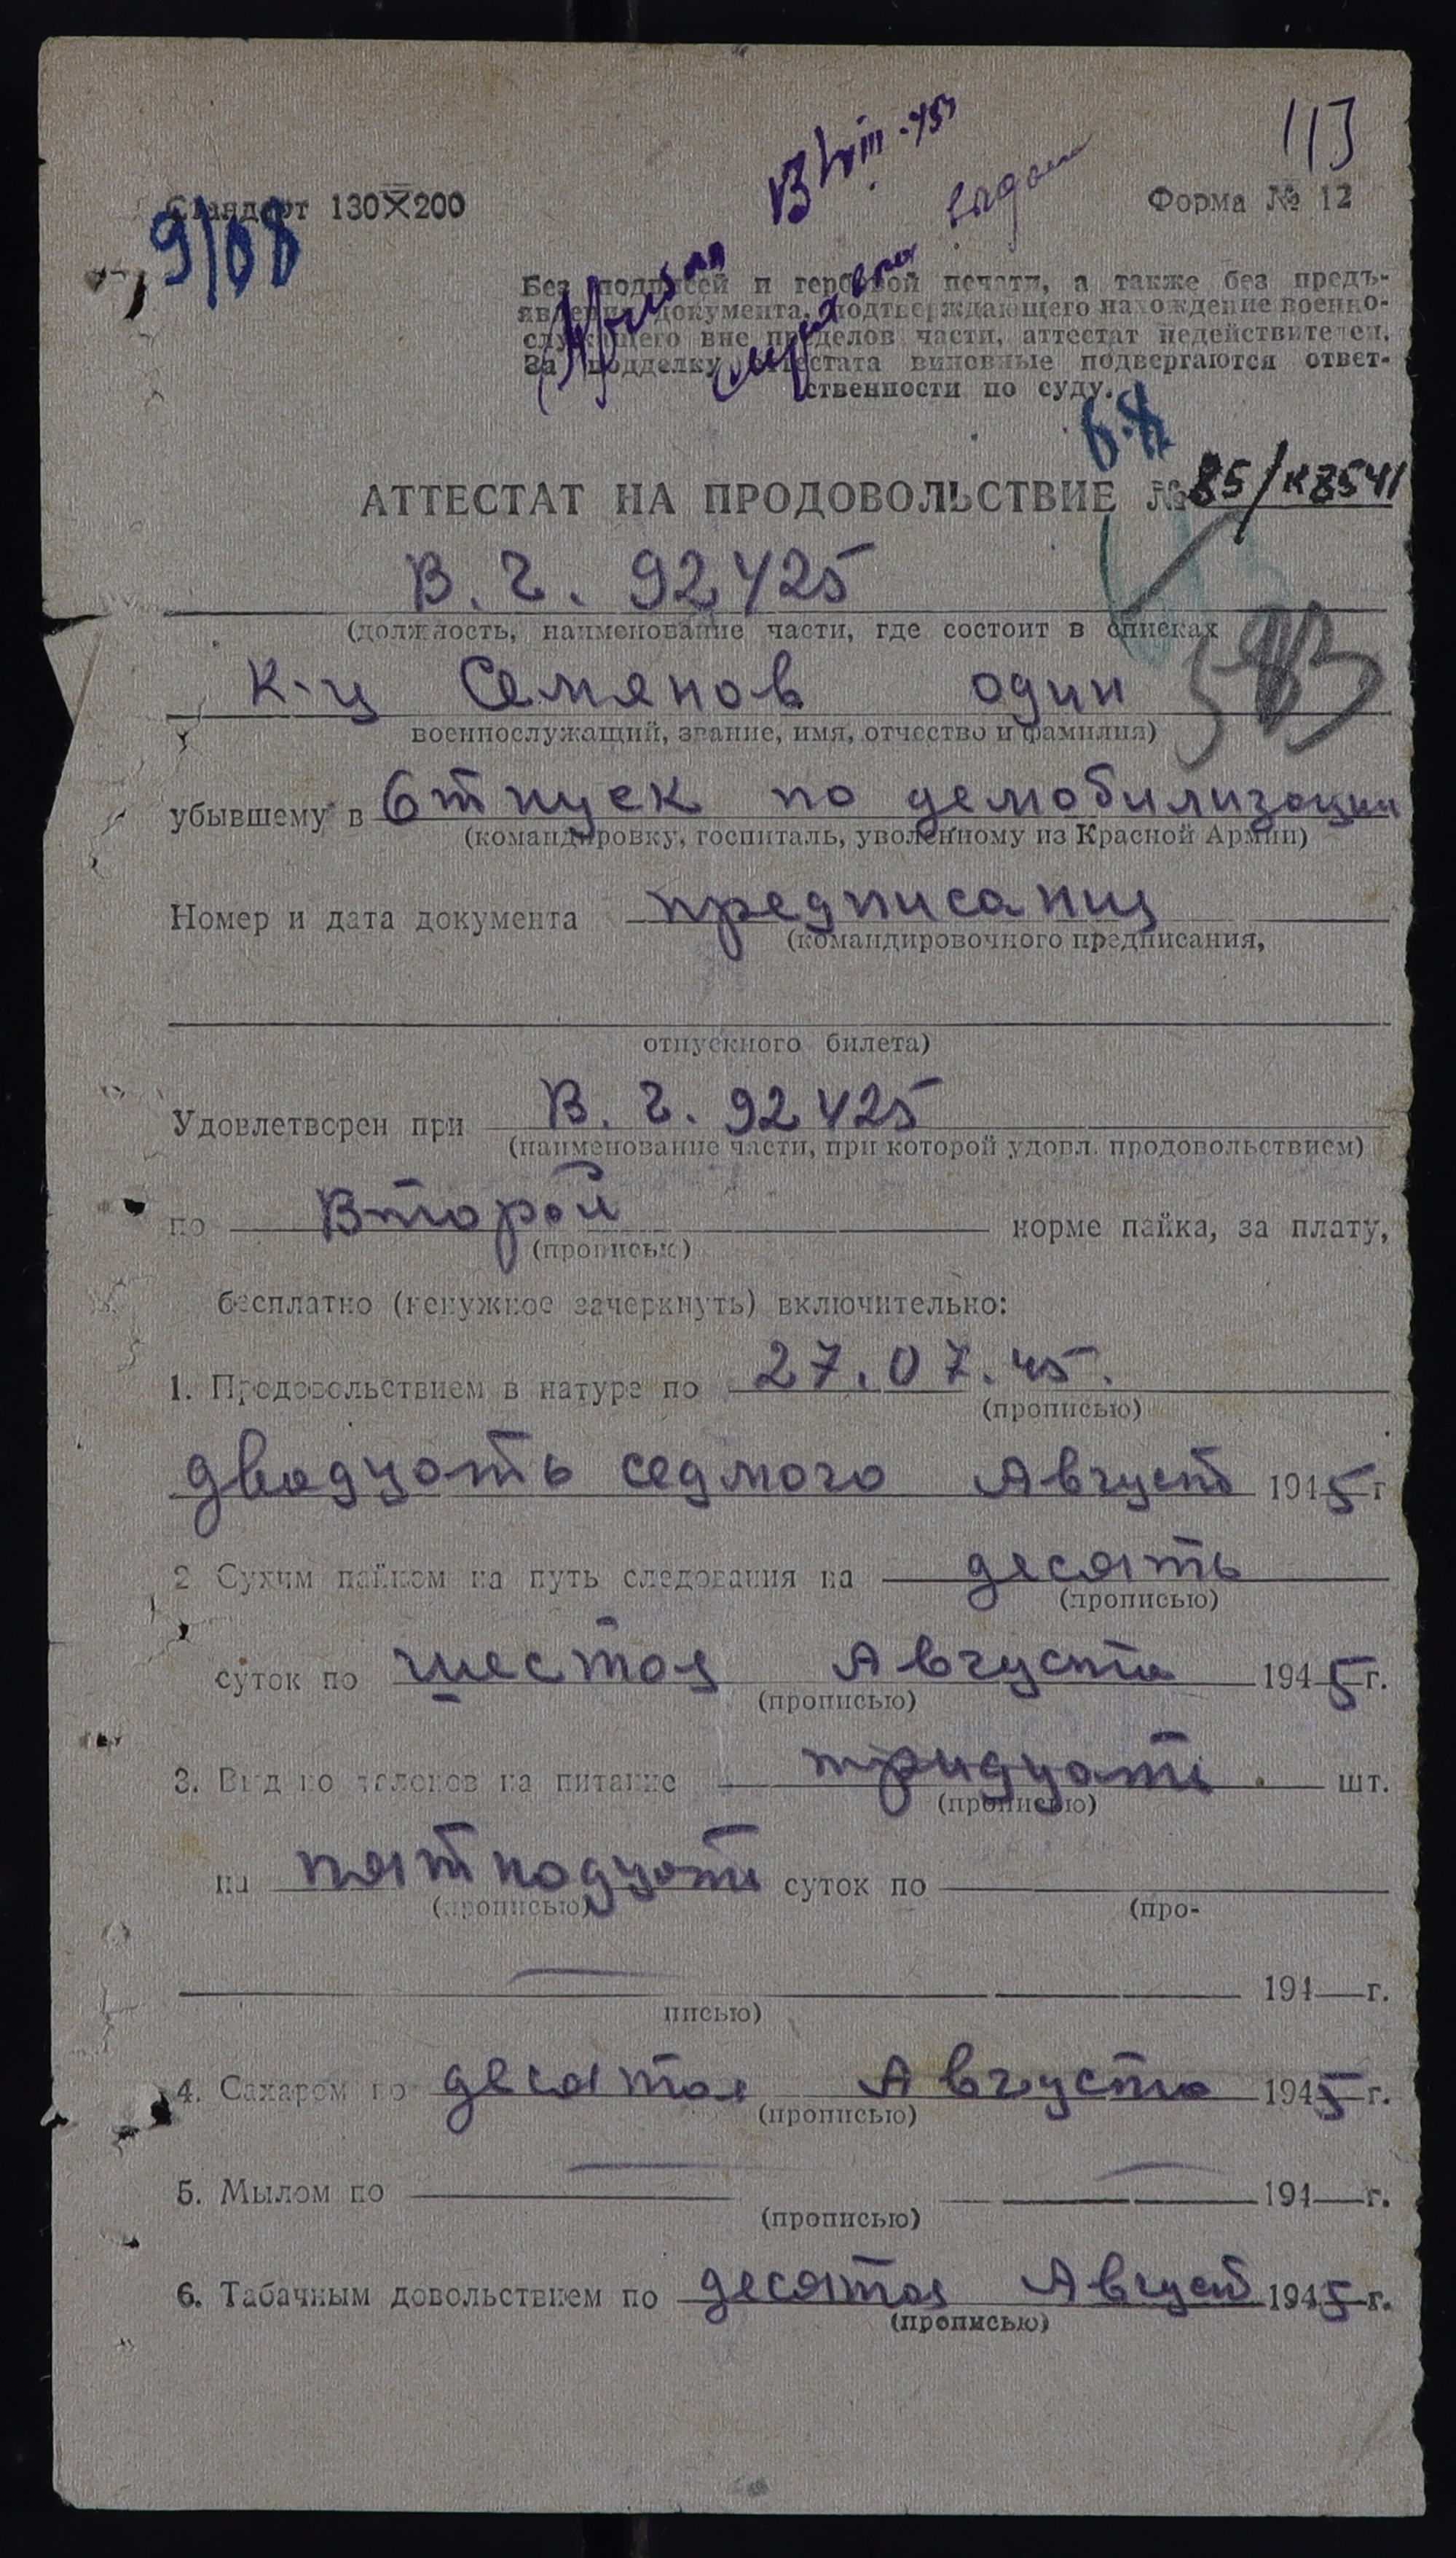 113
Стандарт 130×200
Форма № 12
9/08
Без подписей и гербовой печати, а также без предъ-
явления документа, подтверждающего нахождение военно-
служащего вне пределов части, аттестат недействителен.
За подделку аттестата виновные подвергаются ответ-
ственности по суду.
АТТЕСТАТ НА ПРОДОВОЛЬСТВИЕ № 85/к8541
В. Ч. 92425
(должность, наименование части, где состоит в списках
к-ц Семянов один
военнослужащий, звание, имя, отчество и фамилия)
убывшему в Отпуск по демобилизации
(командировку, госпиталь, уволенному из Красной Армии)
Номер и дата документа предписания
(командировочного предписания,
отпускного билета)
Удовлетворен при В. Ч. 92425
(наименование части, при которой удовл. продовольствием)
по Второй норме пайка, за плату,
(прописью)
бесплатно (ненужное зачеркнуть) включительно:
1. Продовольствием в натуре по 27.07.45.
(прописью)
двадцать седмого Август 1945 г
2 Сухим пайком на путь следования на десять
(прописью)
суток по шестоя Августа 1945 г.
(прописью)
3. Выдано талонов на питание тридцать шт.
(прописью)
на пятнодцать суток по
(прописью) (про-
194 г.
писью)
4. Сахаром по десятоя Августа 1945 г.
(прописью)
5. Мылом по 194 г.
(прописью)
6. Табачным довольствием по десятоя Август 1945 г.
(прописью)